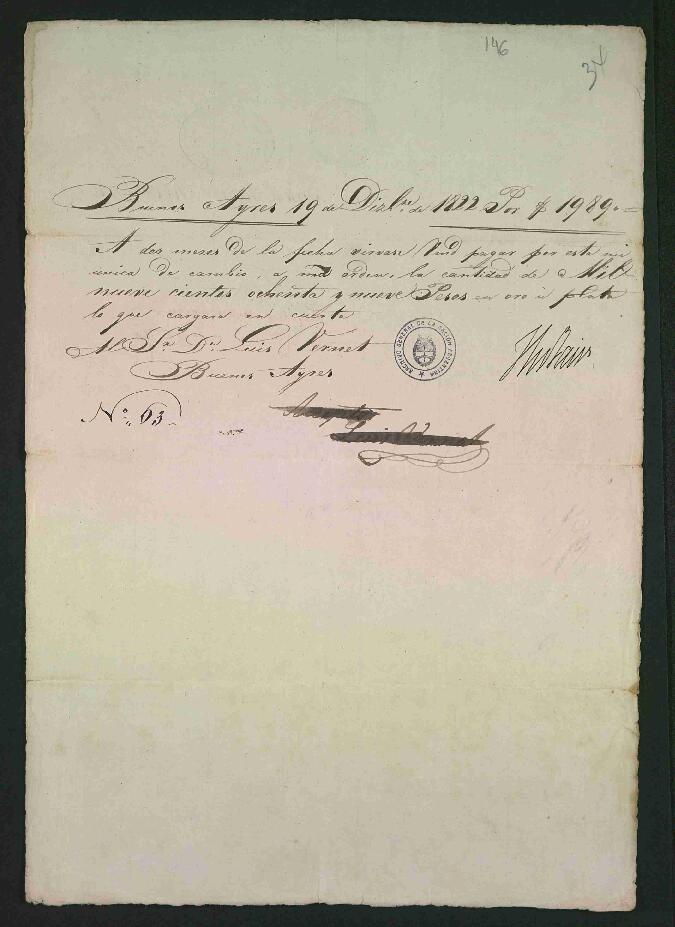 146
34
Buenos Ayres 19 de Dizbre. de 1822 Por $ 1989.=
A dos meses de la fecha sirvase Vmd pagar por esta mi
unica de cambio, a mi orden, la cantidad de Mil
nueve cientos ochenta y nueve Pesos en oro ù plata
lo que cargara en cuenta
Al Sr. Dn. Luis Vernet
Buenos Ayres
ARCHIVO GENERAL DE LA NACION ARGENTINA
No. 63
Acepto
Luis Vernet